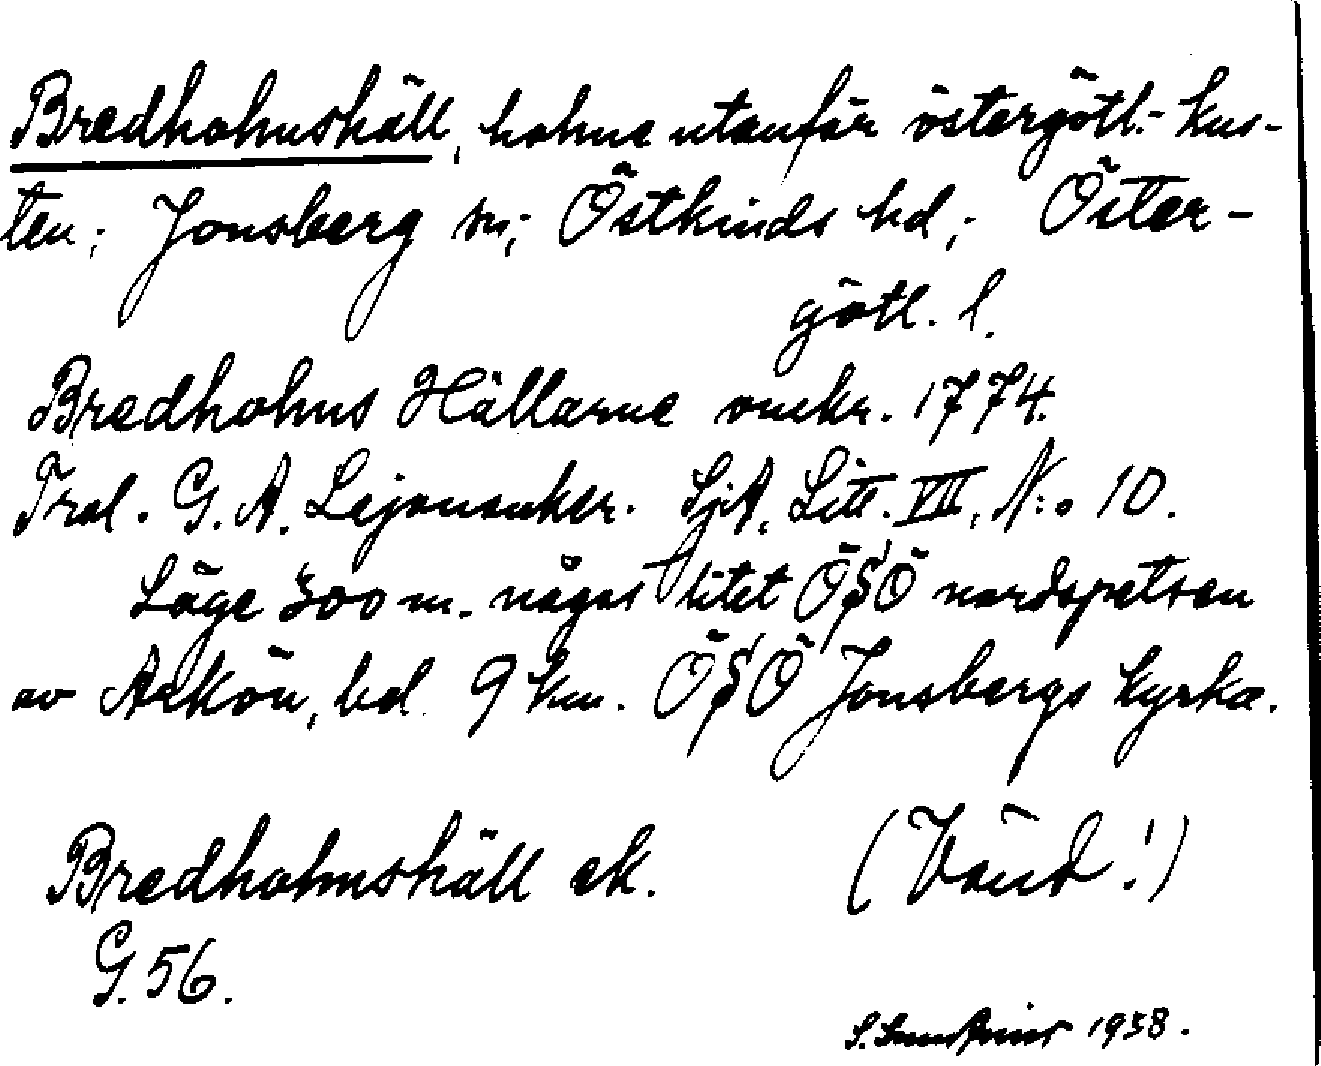 Bredholmshäll, holme utanför östergötl.- kus-
ten; Jonsberg sn; Östkinds hd; Öster-
götl. l.
Bredholms Hällarne omkr. 1774.
Trol. G. A. Lejonanker. SjA, Litt. VII, N:o 10.
Läge 300 m. något litet ÖSÖ nordspetsen
av Arkön, bel. 9 km. ÖSÖ Jonsbergs kyrka.
Bredholmshäll ek. (Vänd!)
G. 56.
1938.